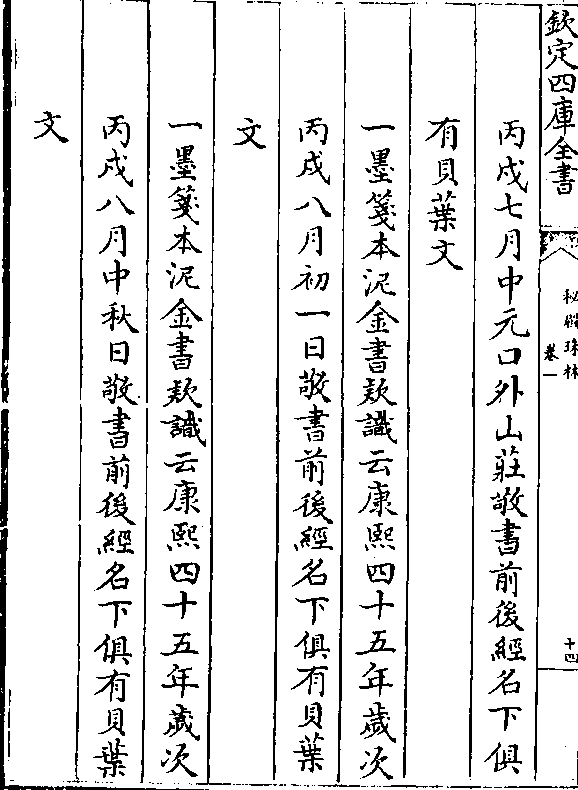 欽定四庫全書
秘殿珠林
卷一
十四
丙戌七月中元口外山莊敬書前後經名下俱
有貝葉文
一墨箋本泥金書款識云康熙四十五年歲次
丙戌八月初一日敬書前後經名下俱有貝葉
文
一墨箋本泥金書款識云康熙四十五年歲次
丙戌八月中秋日敬書前後經名下俱有貝葉
文